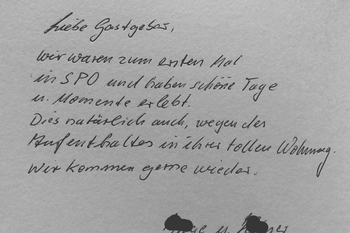 Liebe Gastgeber,
wir waren zum ersten Mal
in SPO und haben schöne Tage
u. Momente erlebt.
Dies natürlich auch, wegen des
Aufenthaltes in ihrer tollen Wohnung.
Wir kommen gerne wieder.
u.